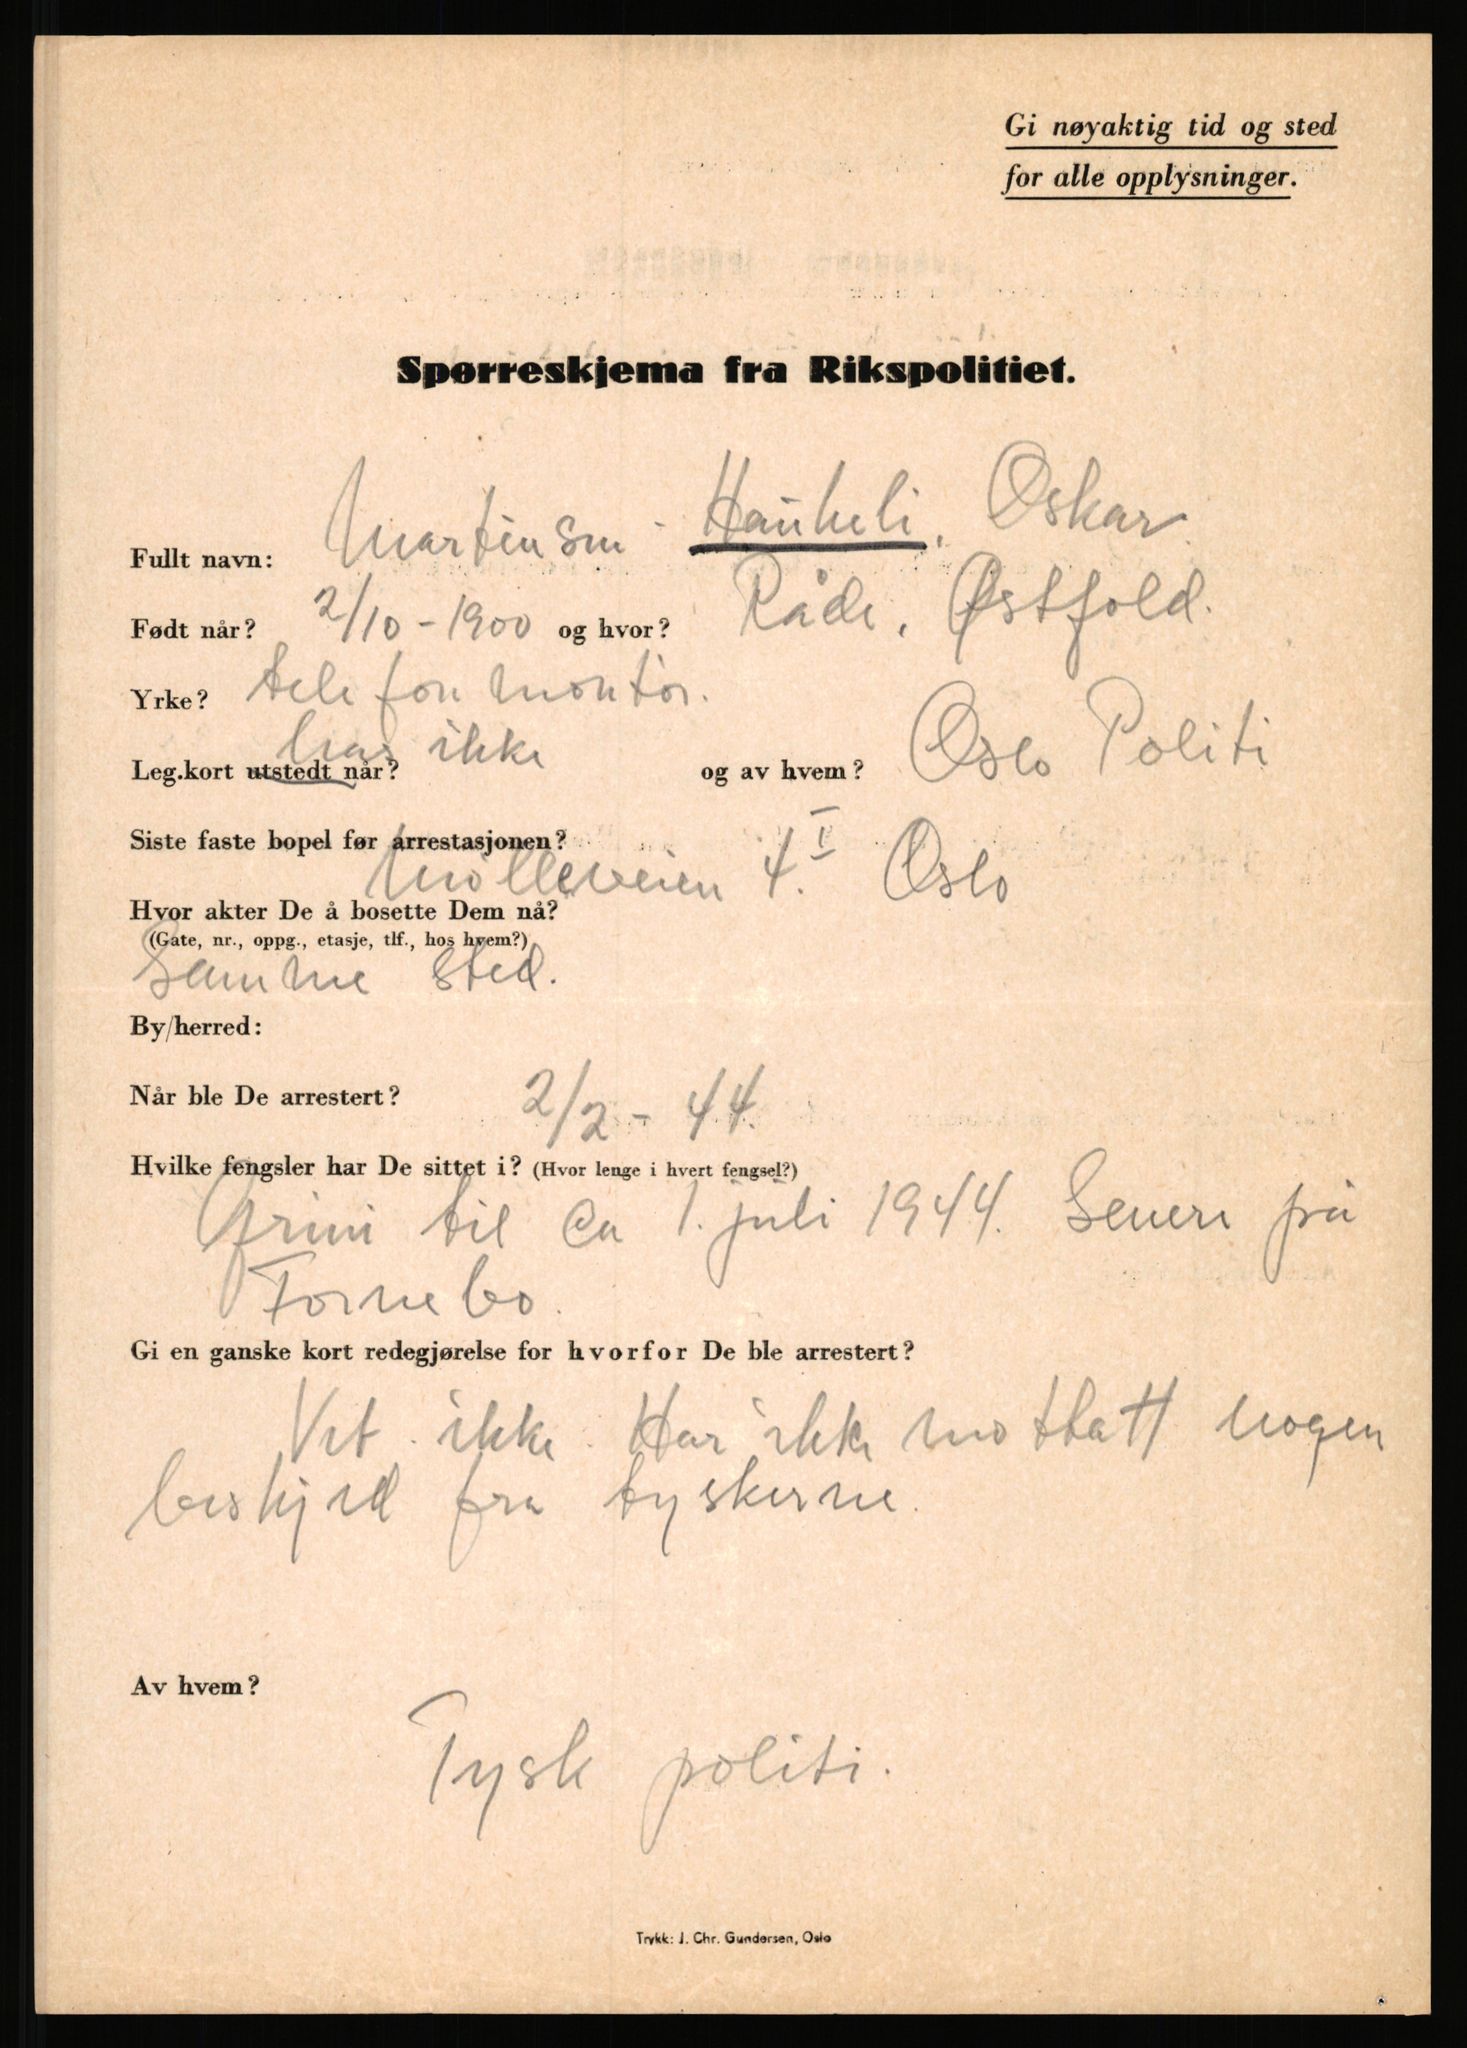 Gi nøyaktig tid og sted
for alle opplysninger.
Spørreskjema fra Rikspolitiet.
Fullt navn: Martinsen - Hauheli, Oskar.
Født når? 2/10-1900 og hvor? Råde, Østfold.
Yrke? telefonmontør.
har ikke
Leg.kort utstedt når? og av hvem? Oslo Politi
Siste faste bopel før arrestasjonen?
Mølleveien 4.I Oslo
Hvor akter De å bosette Dem nå?
(Gate, nr., oppg., etasje, tlf., hos hvem?)
Samme sted.
By/herred:
Når ble De arrestert? 2/2 - 44.
Hvilke fengsler har De sittet i? (Hvor lenge i hvert fengsel?)
Grini til ca 1. juli 1944. Senere på
Fornebo.
Gi en ganske kort redegjørelse for hvorfor De ble arrestert?
Vet ikke. Har ikke mottatt nogen
beskjed fra tyskerne.
Av hvem?
Tysk politi.
Trykk: J. Chr. Gundersen, Oslo